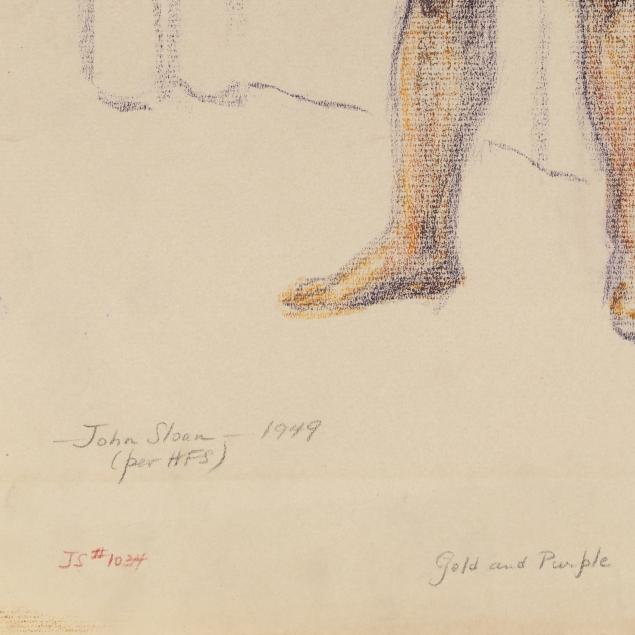 —John Sloan — 1949
(per HFS)
JS #1034
Gold and Purple